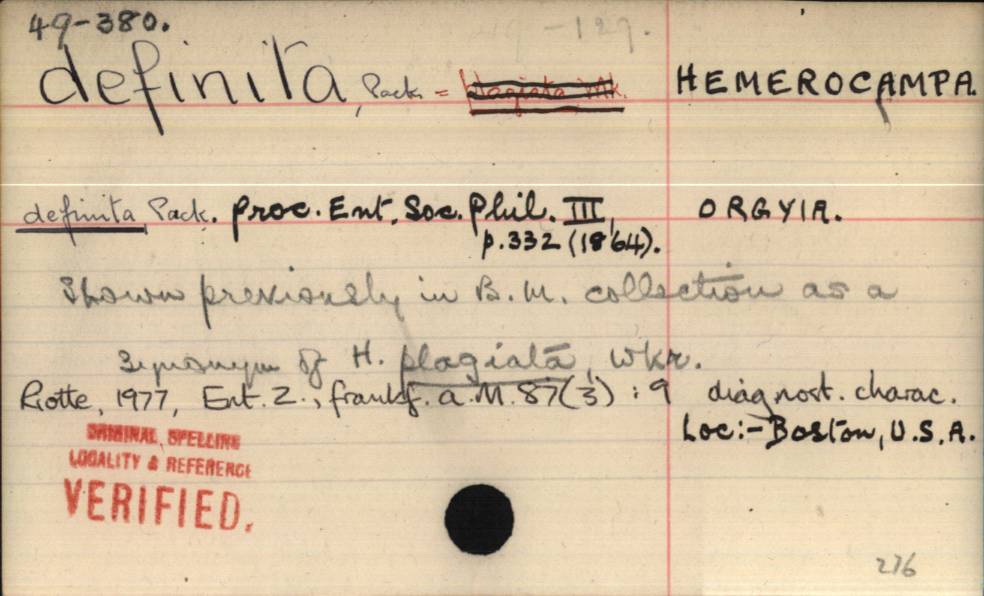 49-380. -127.
definita, Pack = plagiata, Wlk. HEMEROCAMPA.
definita Pack. Proc. Ent. Soc. Phil. III, ORGYIA.
p.332 (1864).
Shown previously in B.M. collection as a
synonym of H. plagiata, Wkr.
Riotte, 1977, Ent. Z., frankf. a.M. 87(3) : 9 diagnost. charac.
Loc:- Boston, U.S.A.
ORIGINAL SPELLING
LOCALITY & REFERENCE
VERIFIED.
276